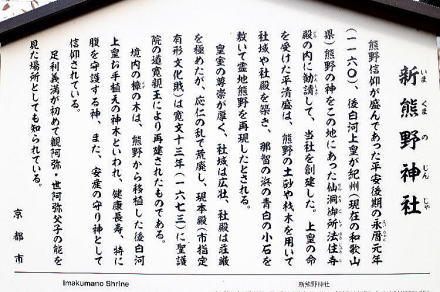 新熊野神社
いまくまのじんじゃ
熊野信仰が盛んであった平安後期の永暦元年
(一一六〇)、後白河上皇が紀州(現在の和歌山
県)熊野の神をこの地にあった仙洞御所法住寺
殿の内に勧請して、当社を創建した。上皇の命
を受けた平清盛は、熊野の土砂や材木を用いて
社域や社殿を築き、那智の浜の青白の小石を
敷いて霊地熊野を再現したとされる。
皇室の尊崇が厚く、社域は広壮、社殿は荘厳
を極めたが、応仁の乱で荒廃し、現本殿(市指定
有形文化財)は寛文十三年(一六七三)に聖護
院の道寛親王により再建されたものである。
境内の樟の木は、熊野から移植した後白河
上皇お手植えの神木といわれ、健康長寿、特に
腹を守護する神、また、安産の守り神として
信仰されている。
足利義満が初めて観阿弥・世阿弥父子の能を
見た場所としても知られている。
京都市
Imakumano Shrine
新熊野神社